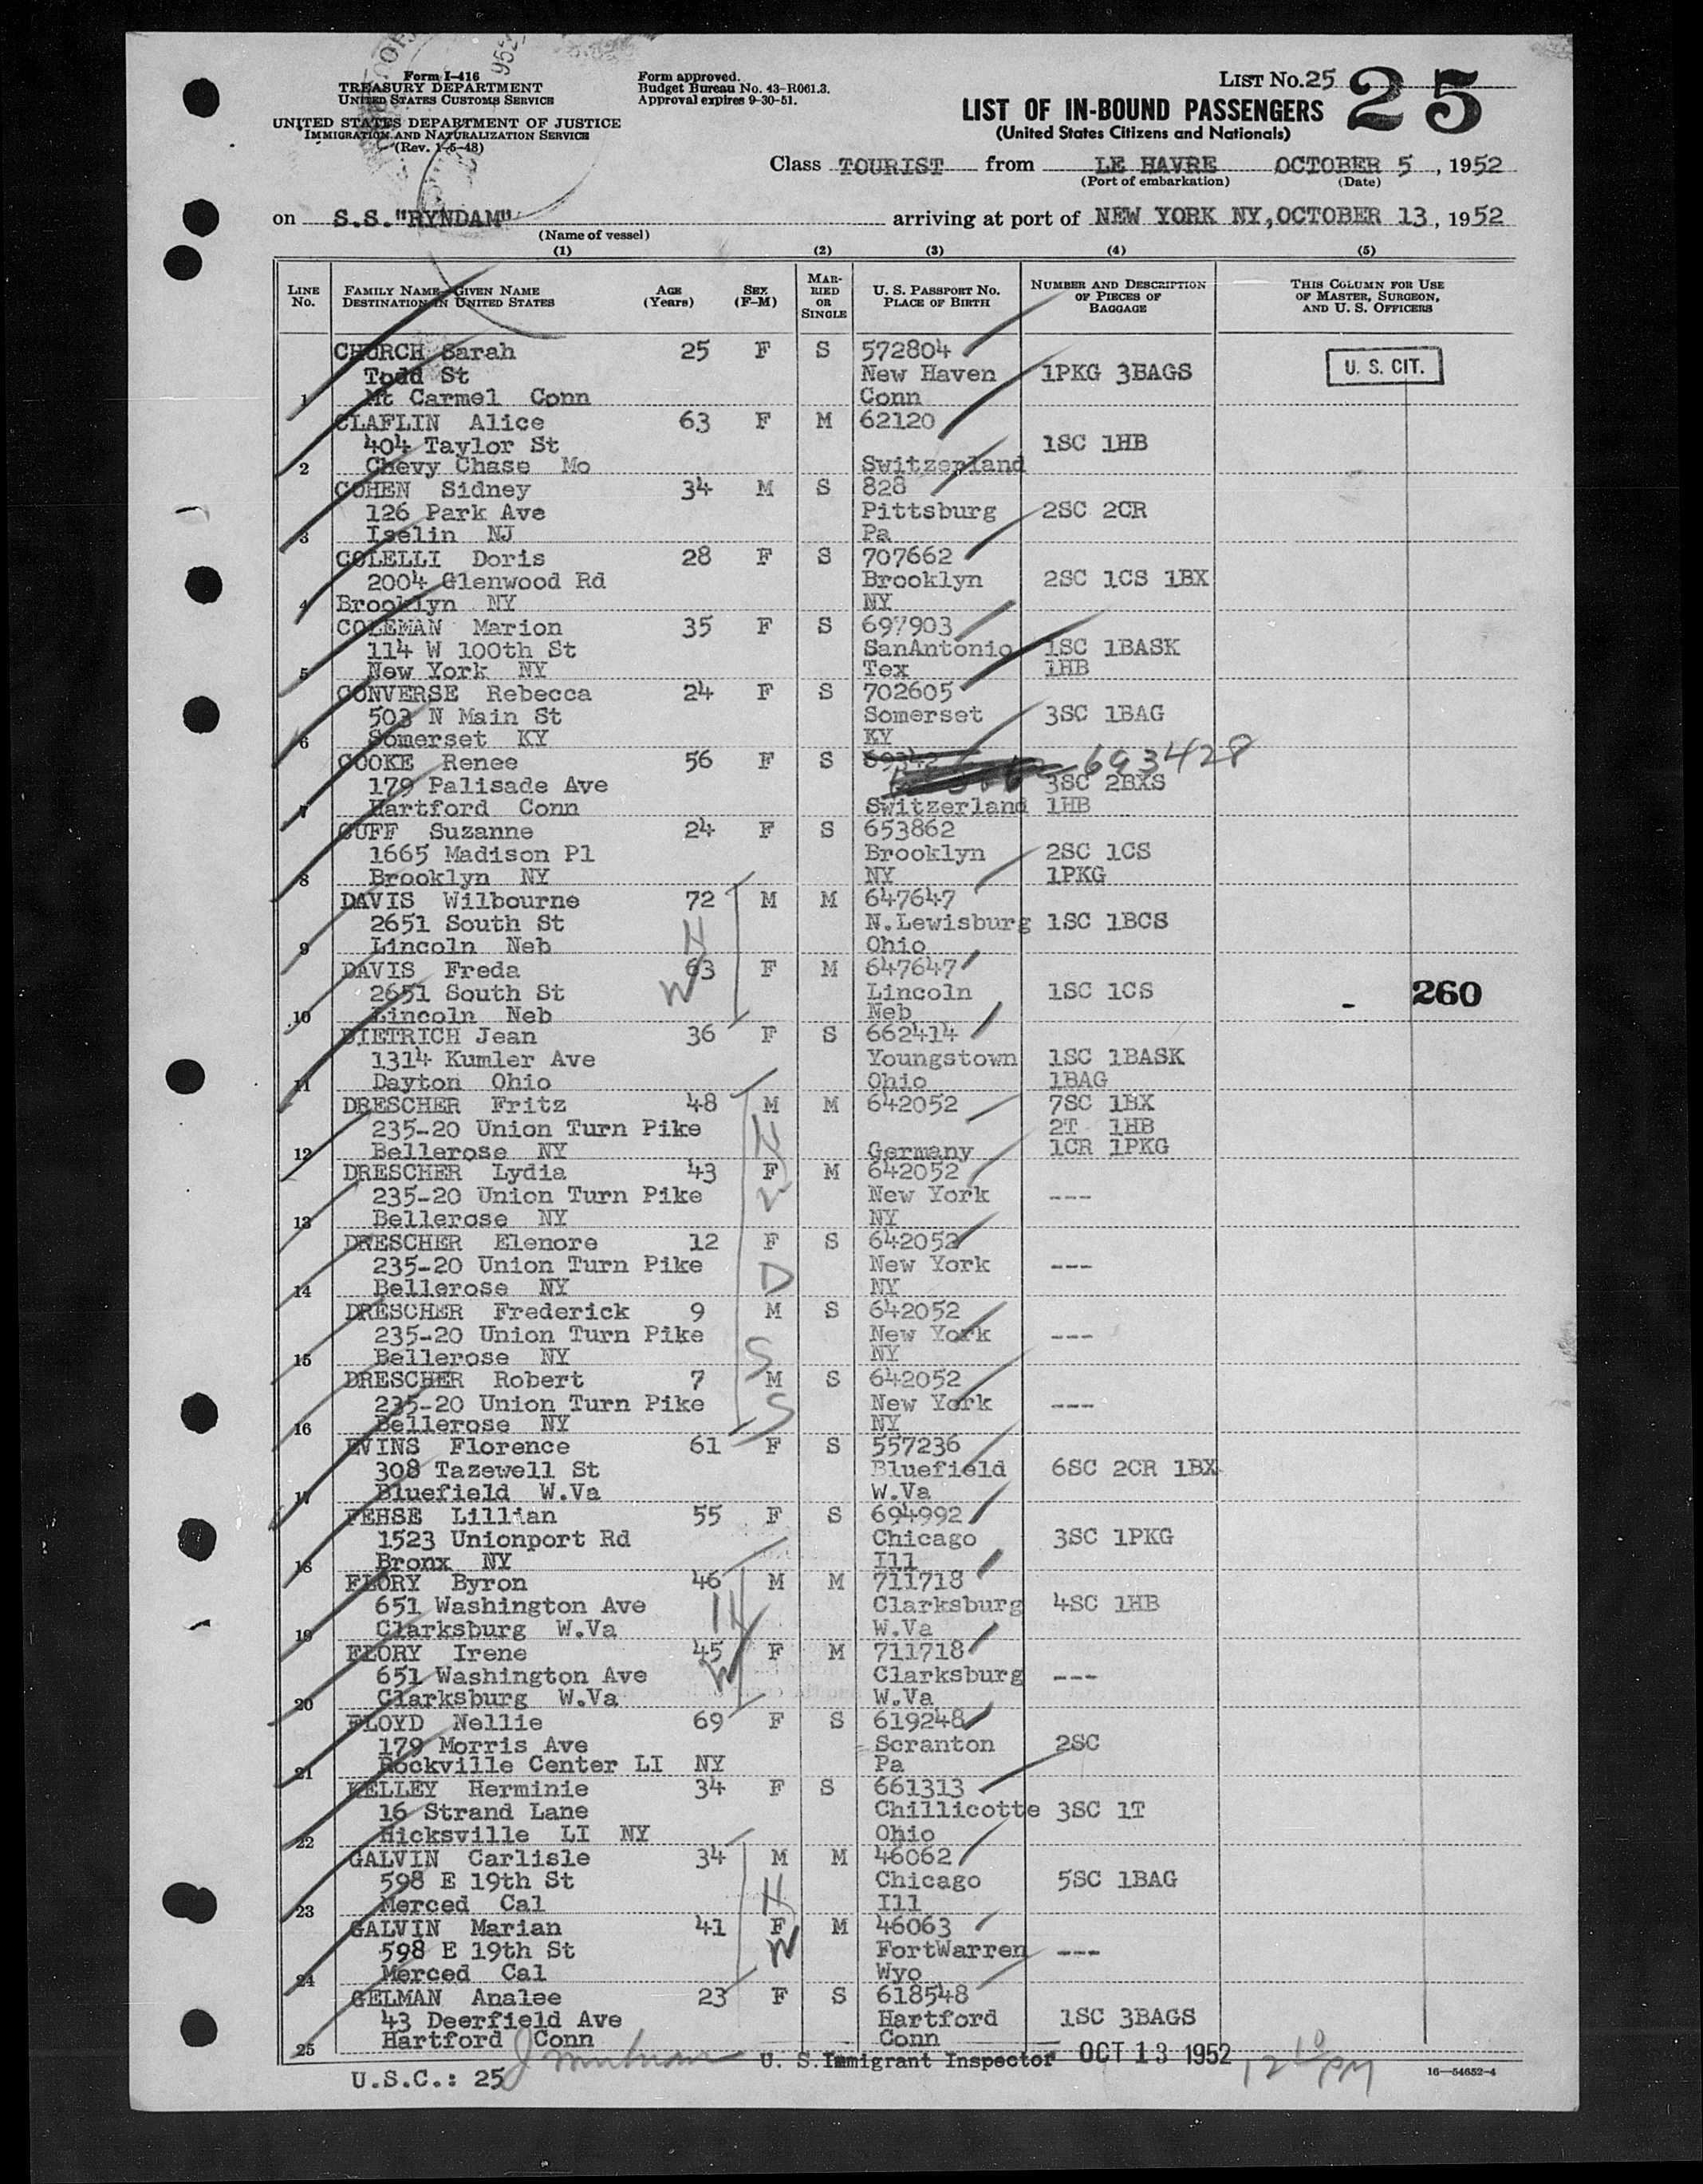 Form I-416
TREASURY DEPARTMENT
UNITED STATES CUSTOMS SERVICE
UNITED STATES DEPARTMENT OF JUSTICE
IMMIGRATION AND NATURALIZATION SERVICE
(Rev. 1-5-48)
Form approved.
Budget Bureau No. 43-R061.3.
Approval expires 9-30-51.
LIST No. 25 25
LIST OF IN-BOUND PASSENGERS
(United States Citizens and Nationals)
Class TOURIST from LE HAVRE OCTOBER 5, 1952
(Port of embarkation) (Date)
on S.S."RYNDAM" arriving at port of NEW YORK NY, OCTOBER 13, 1952
(Name of vessel)
(1) (2) (3) (4) (5)
LINE No. FAMILY NAME—GIVEN NAME DESTINATION IN UNITED STATES AGE (Years) SEX (F-M) MARRIED OR SINGLE U. S. PASSPORT NO. PLACE OF BIRTH NUMBER AND DESCRIPTION OF PIECES OF BAGGAGE THIS COLUMN FOR USE OF MASTER, SURGEON, AND U. S. OFFICERS
CHURCH Sarah 25 F S 572804
Todd St New Haven 1PKG 3BAGS U. S. CIT.
1 Mt Carmel Conn Conn
CLAFLIN Alice 63 F M 62120
404 Taylor St 1SC 1HB
2 Chevy Chase Mo Switzerland
COHEN Sidney 34 M S 828
126 Park Ave Pittsburg 2SC 2CR
3 Iselin NJ Pa
COLELLI Doris 28 F S 707662
2004 Glenwood Rd Brooklyn 2SC 1CS 1BX
4 Brooklyn NY NY
COLEMAN Marion 35 F S 697903
114 W 100th St SanAntonio 1SC 1BASK
5 New York NY Tex 1HB
CONVERSE Rebecca 24 F S 702605
503 N Main St Somerset 3SC 1BAG
6 Somerset KY KY
COOKE Renee 56 F S 693428
179 Palisade Ave 3SC 2BXS
7 Hartford Conn Switzerland 1HB
CUFF Suzanne 24 F S 653862
1665 Madison Pl Brooklyn 2SC 1CS
8 Brooklyn NY NY 1PKG
DAVIS Wilbourne 72 M M 647647
2651 South St N.Lewisburg 1SC 1BCS
9 Lincoln Neb H Ohio
DAVIS Freda 63 F M 647647
2651 South St W Lincoln 1SC 1CS - 260
10 Lincoln Neb Neb
DIETRICH Jean 36 F S 662414
1314 Kumler Ave Youngstown 1SC 1BASK
11 Dayton Ohio Ohio 1BAG
DRESCHER Fritz 48 M M 642052 7SC 1BX
235-20 Union Turn Pike H 2T 1HB
12 Bellerose NY Germany 1CR 1PKG
DRESCHER Lydia 43 F M 642052
235-20 Union Turn Pike New York ---
13 Bellerose NY NY
DRESCHER Elenore 12 F S 642052
235-20 Union Turn Pike D New York ---
14 Bellerose NY NY
DRESCHER Frederick 9 M S 642052
235-20 Union Turn Pike New York ---
15 Bellerose NY S NY
DRESCHER Robert 7 M S 642052
235-20 Union Turn Pike S New York ---
16 Bellerose NY NY
EVINS Florence 61 F S 557236
308 Tazewell St Bluefield 6SC 2CR 1BX
17 Bluefield W.Va W.Va
FEHSE Lillian 55 F S 694992
1523 Unionport Rd Chicago 3SC 1PKG
18 Bronx NY Ill
FLORY Byron 46 M M 711718
651 Washington Ave H Clarksburg 4SC 1HB
19 Clarksburg W.Va W.Va
FLORY Irene 45 F M 711718
651 Washington Ave W Clarksburg ---
20 Clarksburg W.Va W.Va
FLOYD Nellie 69 F S 619248
179 Morris Ave Scranton 2SC
21 Rockville Center LI NY Pa
KELLEY Herminie 34 F S 661313
16 Strand Lane Chillicotte 3SC 1T
22 Hicksville LI NY Ohio
GALVIN Carlisle 34 M M 46062
598 E 19th St H Chicago 5SC 1BAG
23 Merced Cal Ill
GALVIN Marian 41 F M 46063
598 E 19th St W FortWarren ---
24 Merced Cal Wyo
GELMAN Analee 23 F S 618548
43 Deerfield Ave Hartford 1SC 3BAGS
25 Hartford Conn Conn
U. S. Immigrant Inspector OCT 13 1952 12 10 PM
U.S.C.: 25 16—54652-4